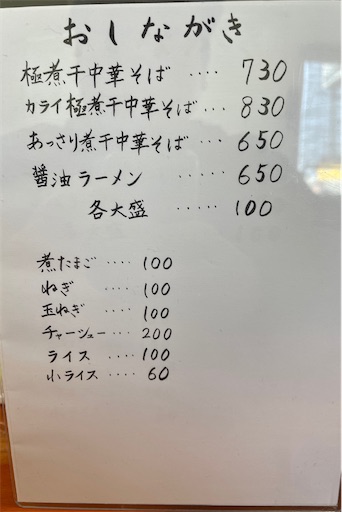 おしながき
極煮干中華そば ‥‥ 730
カライ極煮干中華そば ‥‥ 830
あっさり煮干中華そば ‥‥ 650
醤油ラーメン ‥‥‥ 650
各大盛 ‥‥‥ 100
煮たまご ‥‥ 100
ねぎ ‥‥ 100
玉ねぎ ‥‥ 100
チャーシュー ‥‥ 200
ライス ‥‥ 100
小ライス ‥‥ 60